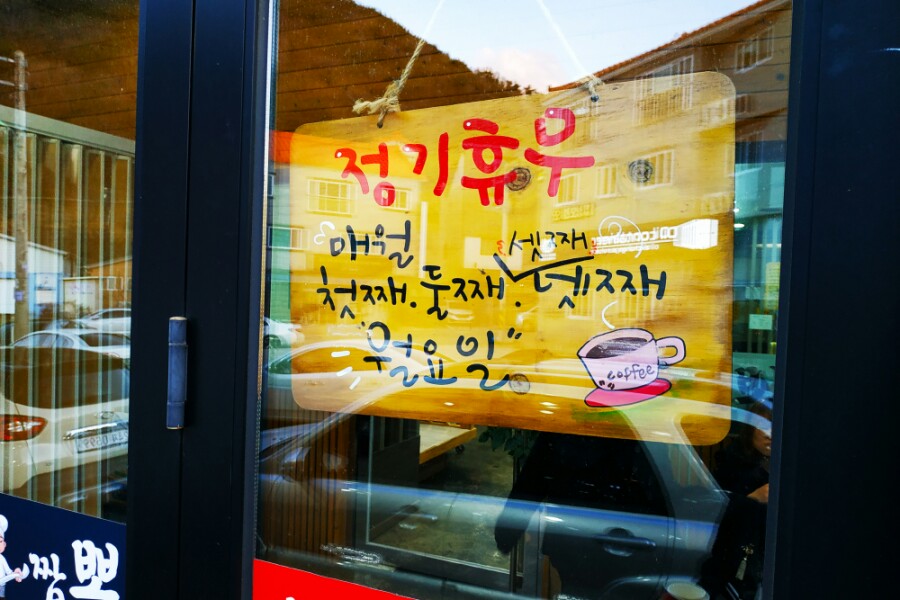 정기휴우
매월
셋째
첫째.둘째. 넷째
"월요일"
coffee
짬뽕